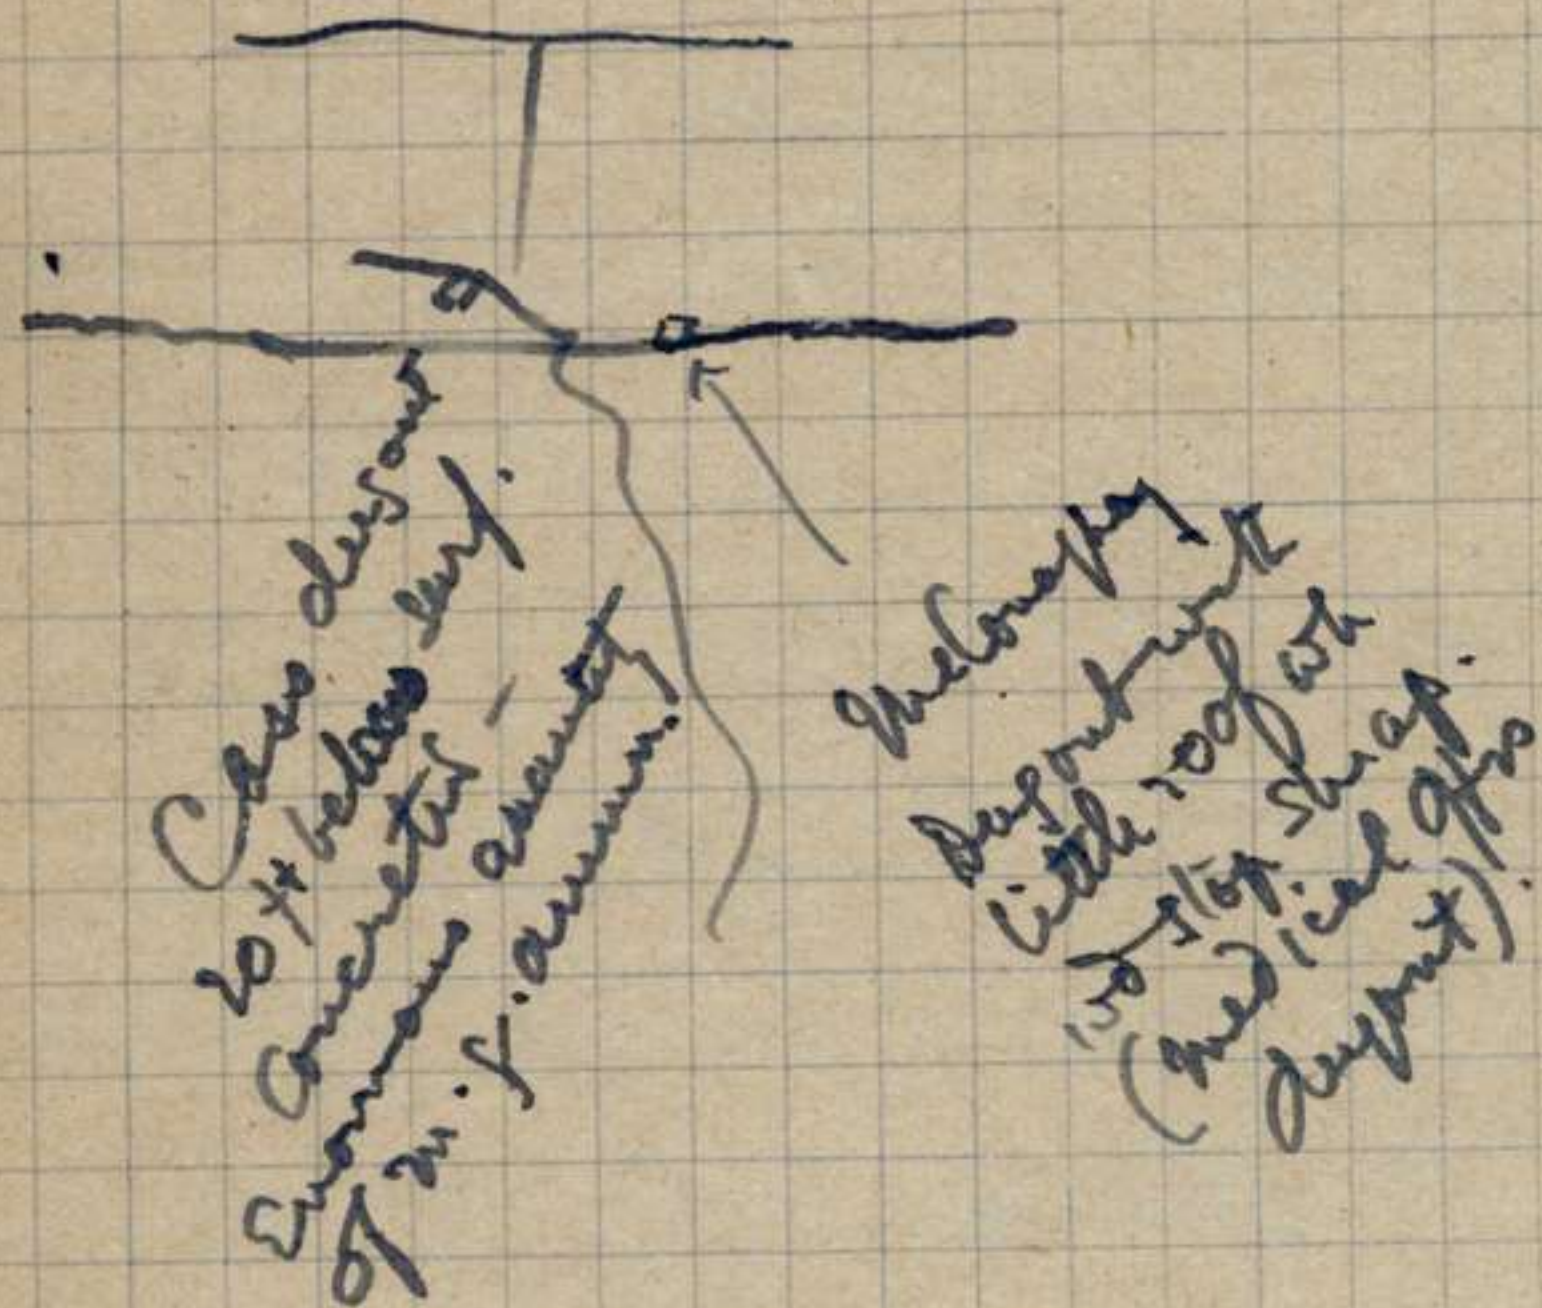 dugout
20 ft below surf.
Concreted —
Enormous quantity
of m. g. ammn.
Dugout with
little roof wh
wd stop shrap.
(Medical Offrs
dugout).